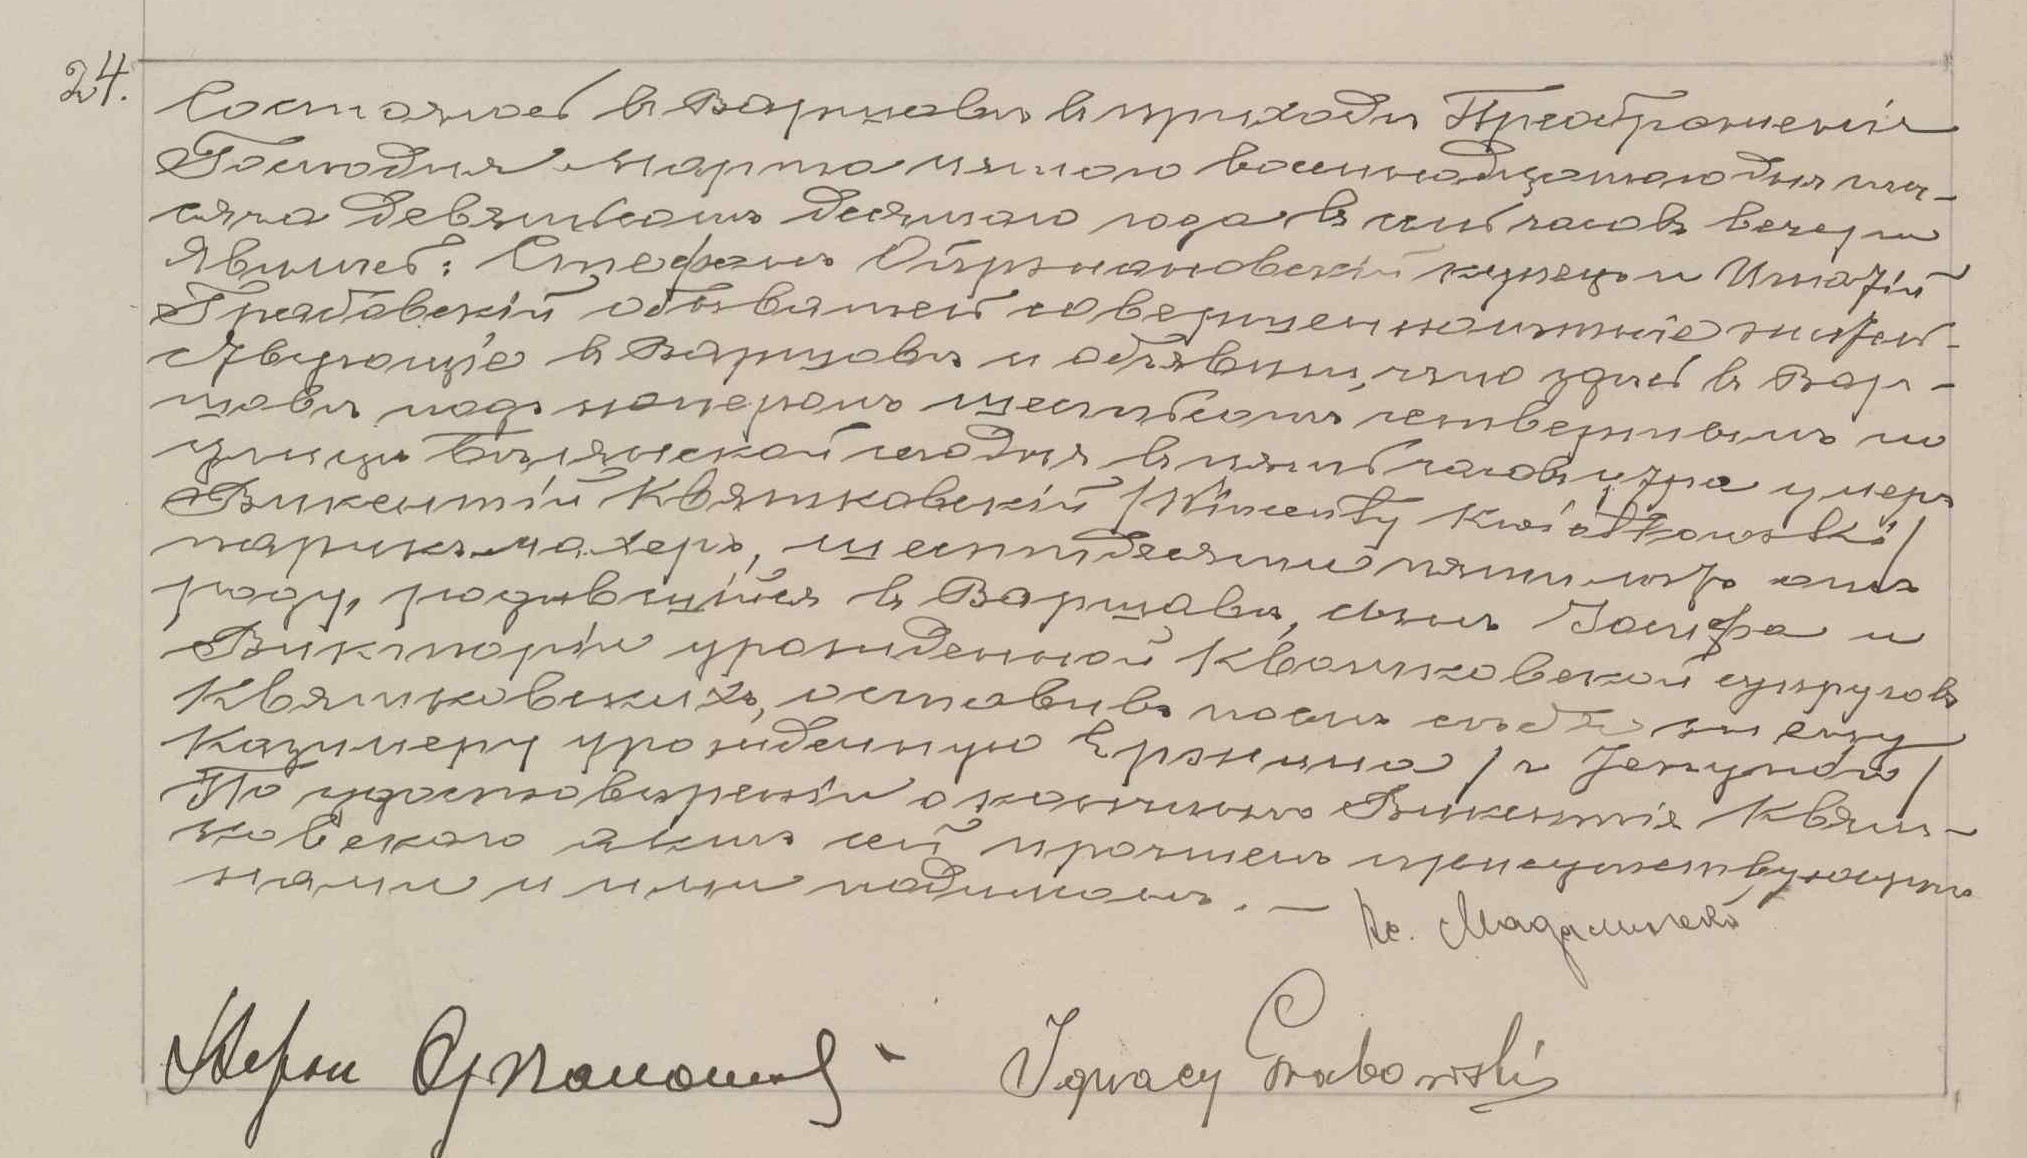 24.
Состоялось въ Варшавѣ въ приходѣ Преображенія
Господня марта пятаго восемнадцатаго дня мѣ-
сяца девятьсотъ десятаго года въ часовъ вечера
Явились: Стефанъ купецъ и Игнатій
Грабовскій обыватель совершеннолѣтніе житель-
ствующіе въ Варшавѣ и объявили, что здѣсь въ Вар-
шавѣ подъ номеромъ шестьсотъ четвертымъ по
улицѣ сегодня въ пять часовъ утра умеръ
Викентій Квятковскій /Wincenty Kwiatkowski/
парикмахеръ, шестидесяти пяти лѣтъ отъ
роду, родившійся въ Варшавѣ, сынъ Іосифа и
Викторіи урожденной Квятковской супруговъ
Квятковскихъ, оставивъ послѣ себя жену
Казимеру урожденную
По удостовѣреніи о кончинѣ Викентія Квят-
ковскаго актъ сей прочтенъ присутствующимъ
нами и ими подписанъ. —
Кс.
Stefan
Ignacy Grabowski